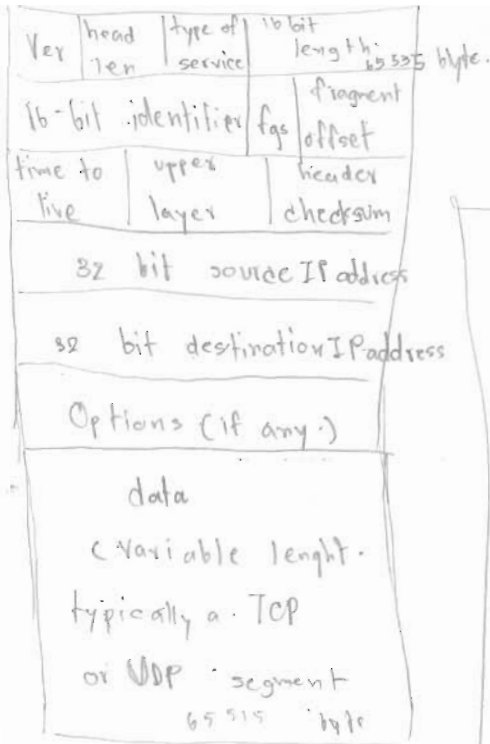 Ver head len type of service 16 bit length: 65535 byte.
16-bit identifier fgs fragment offset
time to live upper layer header checksum
32 bit source IP address
32 bit destination IP address
Options (if any.)
data
(variable lenght.
typically a. TCP
or UDP segment
65515 byte